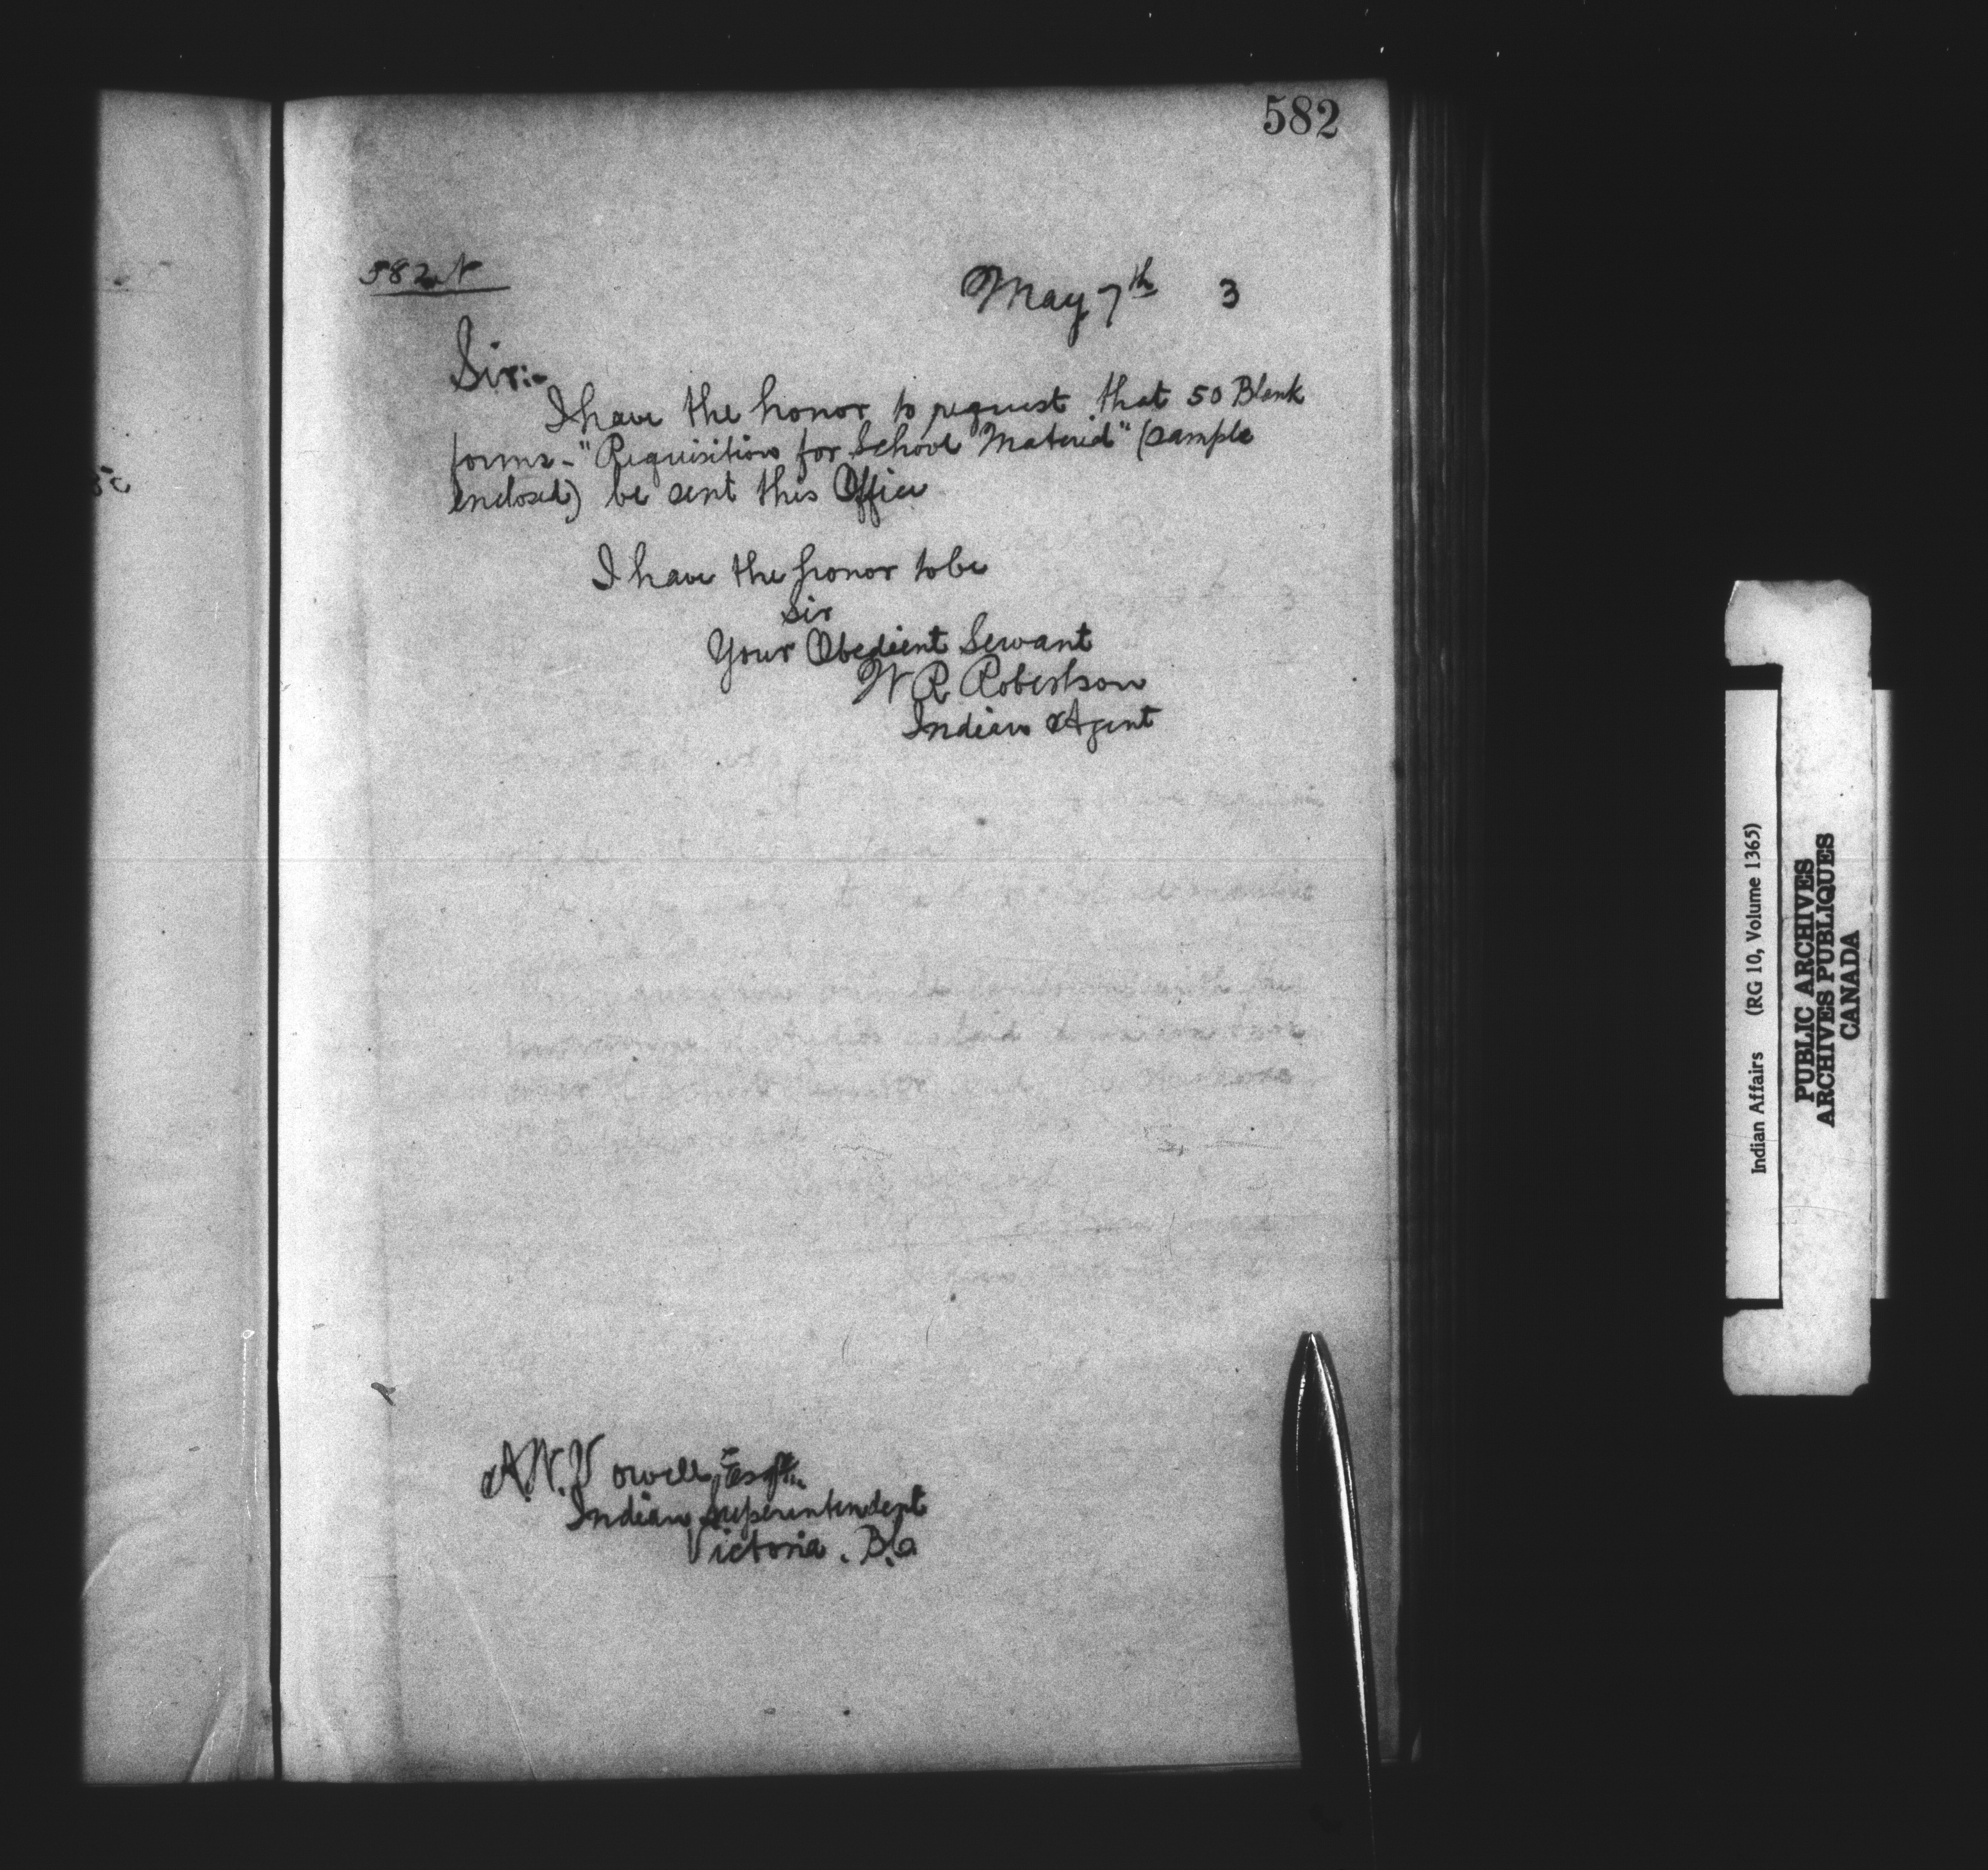 582
582 N
May 7th 3
Sir:-
I have the honor to request that 50 Blank
forms - "Requisition for School Material" (sample
enclosed) be sent this Office
I have the honor to be
Sir
Your Obedient Servant
W R Robertson
Indian Agent
A.W. Vowell, Esq
Indian Superintendent
Victoria. B.C.
Indian Affairs (RG 10, Volume 1365)
PUBLIC ARCHIVES
ARCHIVES PUBLIQUES
CANADA